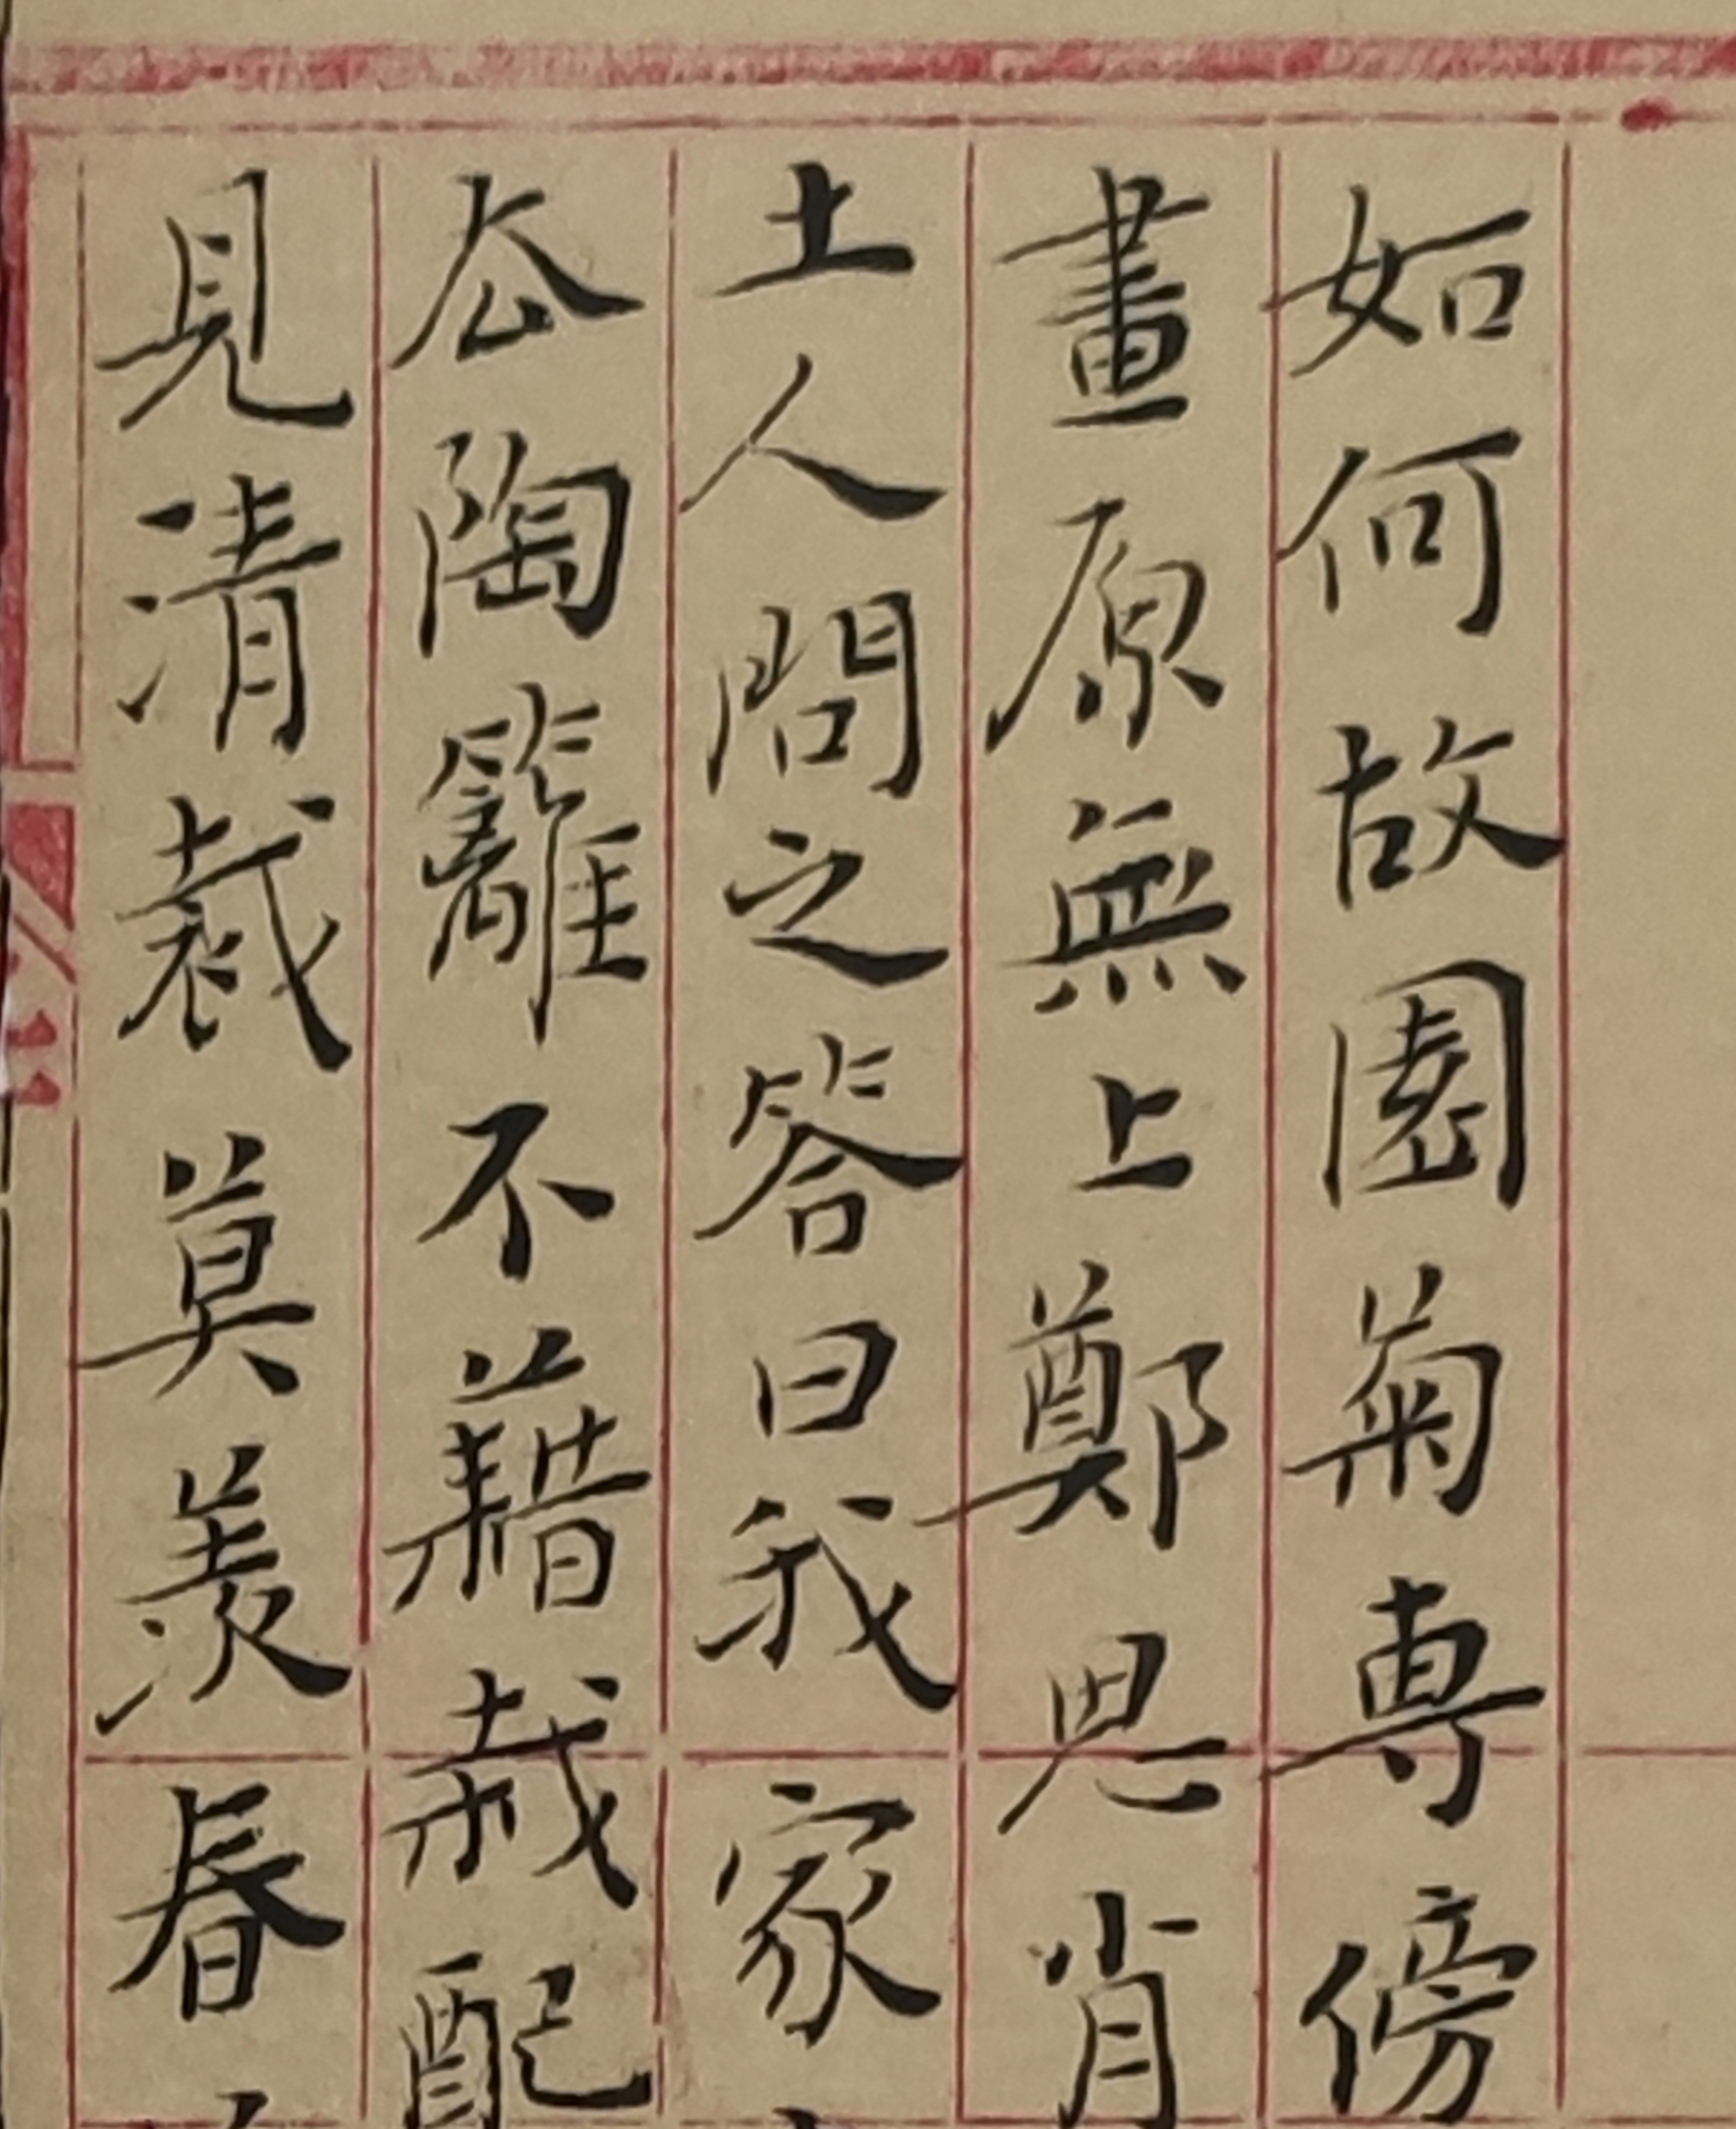 如何故園菊專傍
畫原無上鄭思肖
土人問之答曰我家
厺陶籬不藉栽配
見清裁莫羡春